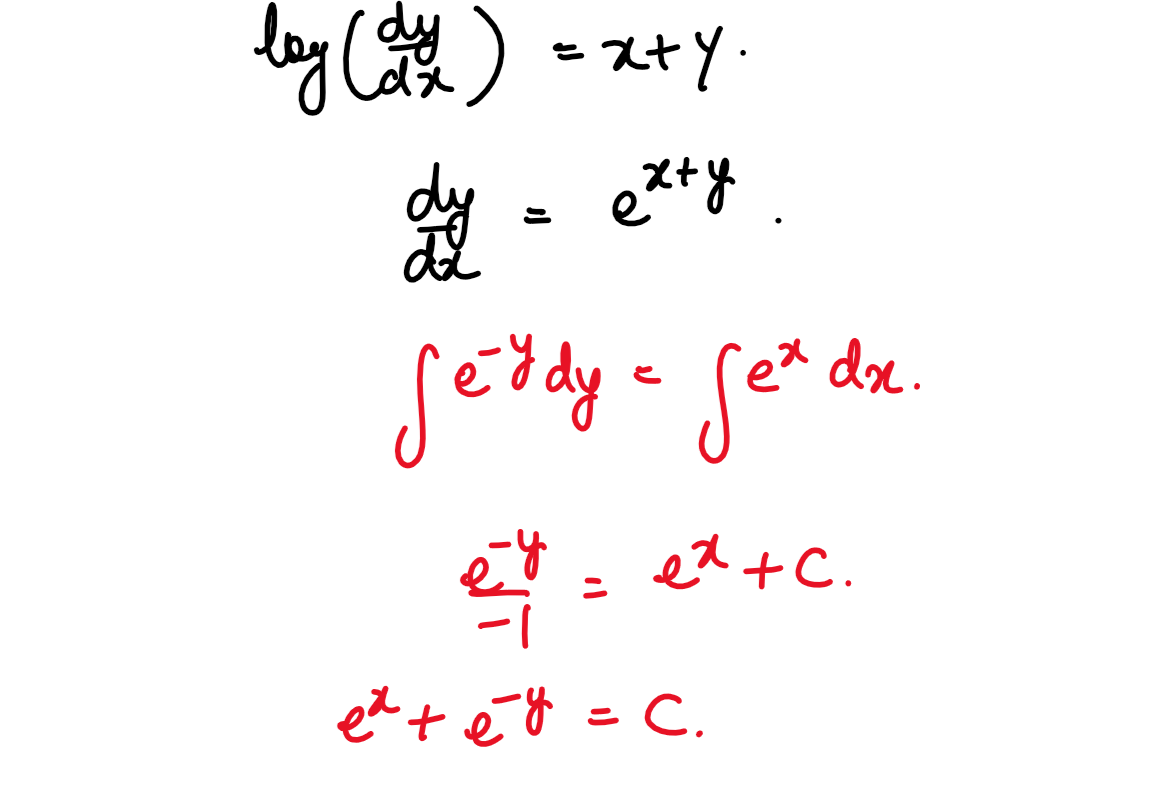 log(dy/dx) = x+y.
dy/dx = e^{x+y}.
∫e^{-y}dy = ∫e^x dx.
e^{-y}/-1 = e^x + C.
e^x + e^{-y} = C.